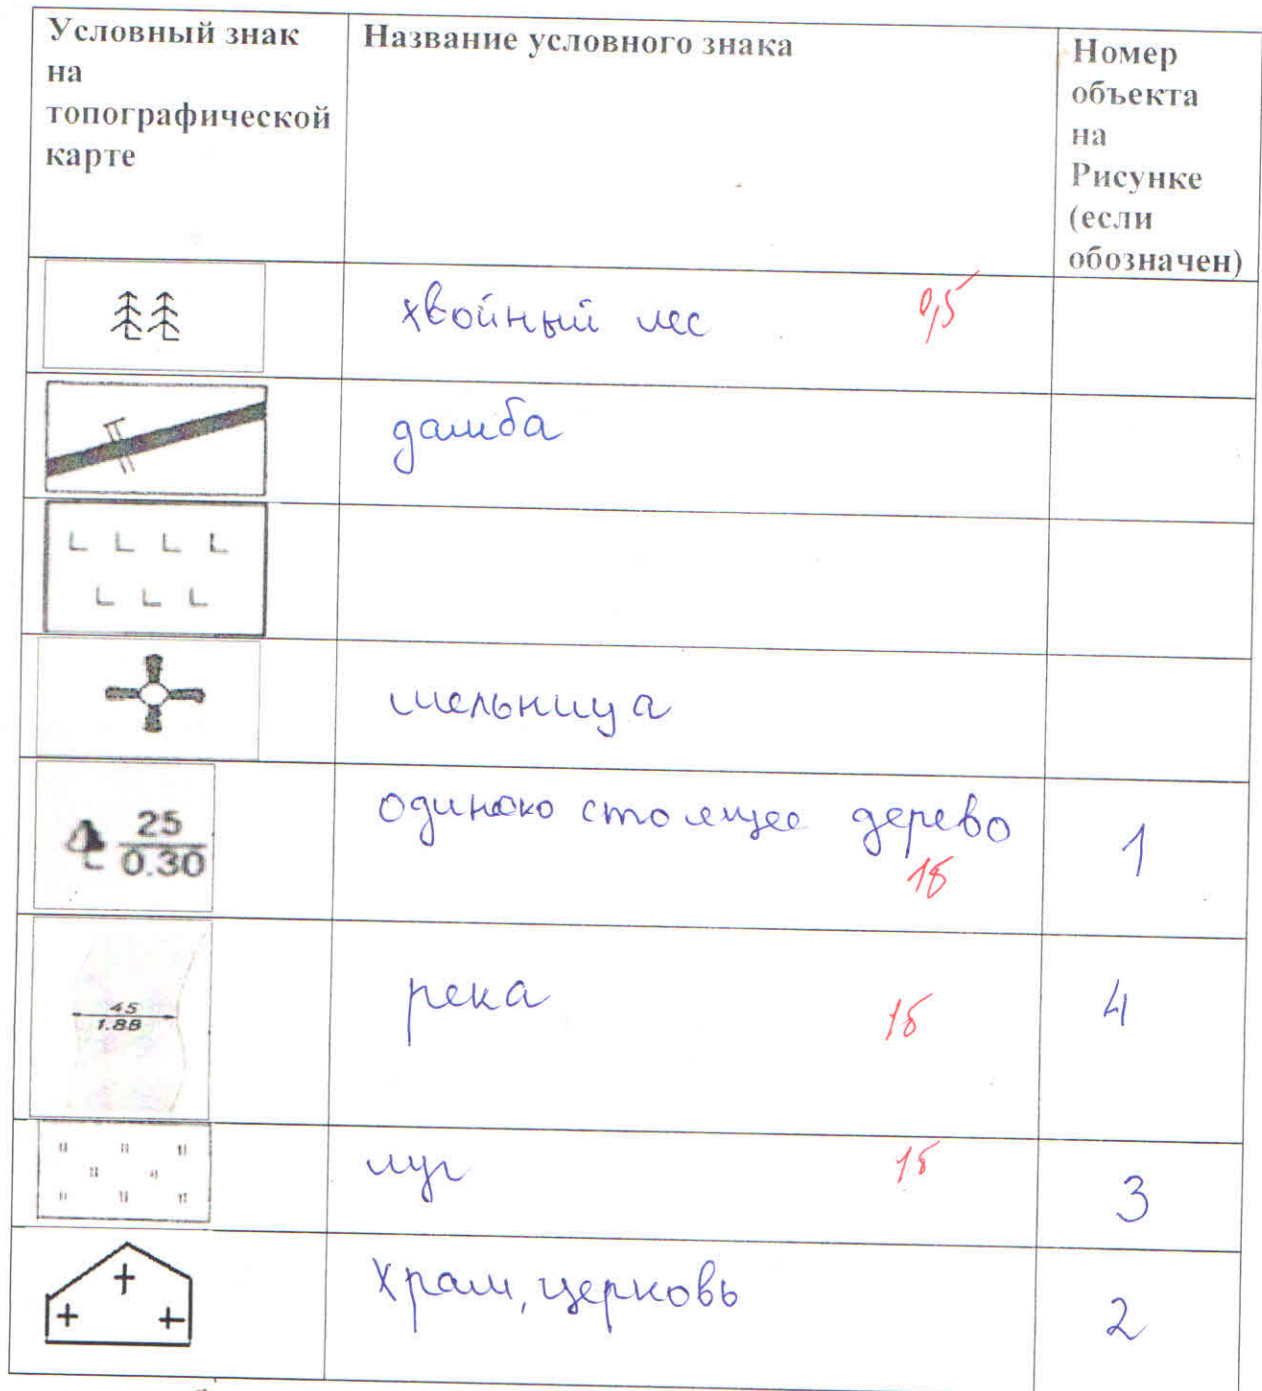 Условный знак
на
топографической
карте
Название условного знака
Номер
объекта
на
Рисунке
(если
обозначен)
хвойный лес
0,5
дамба
мельница
25
0.30
одиноко стоящее дерево
1б
1
45
1.88
река
1б
4
луг
1б
3
храм, церковь
2